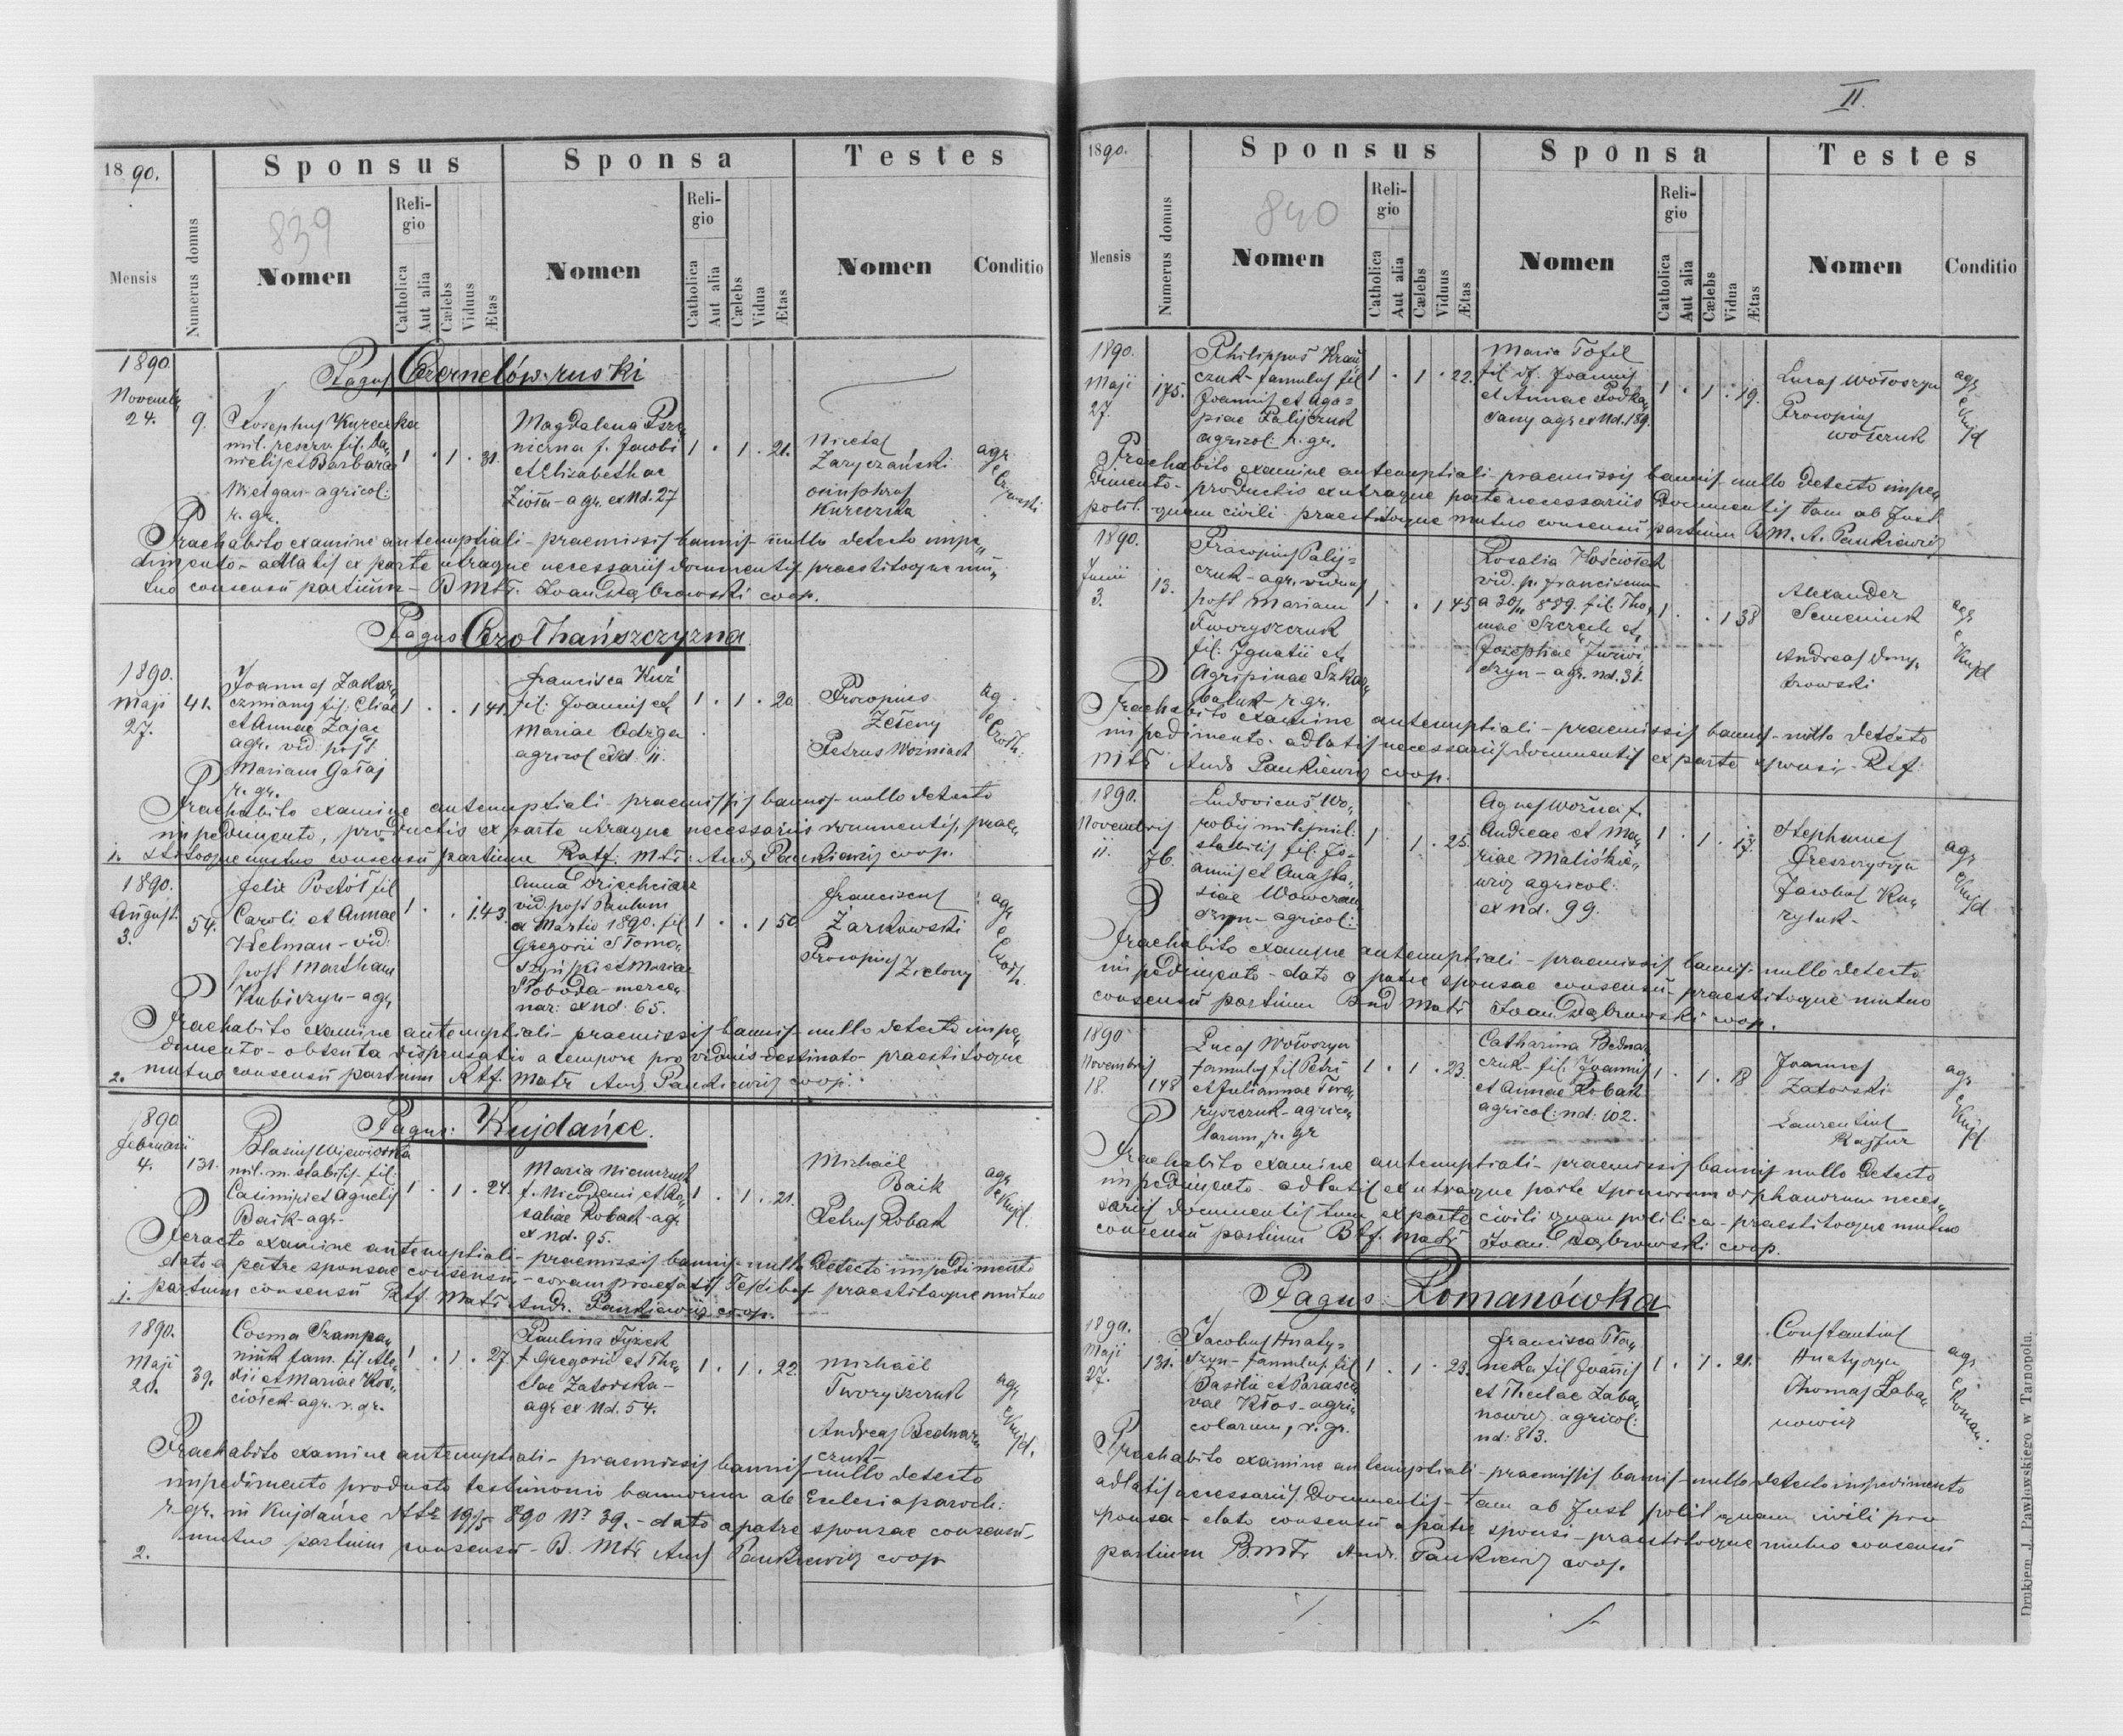 1890.
Sponsus
Sponsa
Testes
Mensis
Numerus domus
839
Nomen
Religio
Catholica
Aut alia
Cælebs
Viduus
Ætas
Nomen
Religio
Catholica
Aut alia
Cælebs
Vidua
Ætas
Nomen
Conditio
Pagus Czernelów-ruski
1890.
24.
9.
Josephus Kureczka
mil. reserv. fil. Da„
nielis et Barbarae
agricol:
r. gr.
1 . 1 . 31.
Magdalena Psze„
niczna f. Jacobi
et Elisabethae
Zioła - agr. ex Nd. 27
1 . 1 . 21.
Michał
Zaryczański
Onuphrius
Kureczka
agr.
Praehabito examine antenuptiali - praemissis bannis - nullo detecto impe„
dimento - adlatis ex parte utraque necessariis documentis praestitoque mu„
tuo consensu partium - B Mtr. Joan Dąbrowski coop.
Pagus Czołhańszczyzna
1890.
Maji
27.
41.
Joannes Zakar„
czmiany fil. Eliae
et Annae Zając
agr. vid. post
Mariam Gałaj
r. gr.
1 . . 1 41.
Francisca Kuź
fil. Joannis et
Mariae Odzga
agricol ex Nd. 11.
1 . 1 . 20
Procopius
Zeleny
Petrus Woźniak
ag.
e
Czołh.
Praehabito examine antenuptiali - praemissis bannis - nullo detecto
impedimento, productis ex parte utraque necessariis documentis, prae„
1. stitoque mutuo consensu partium Ratf: Mtr: Andr. Pankiewicz coop.
1890.
August.
3.
54.
Felix Postół fil
Caroli et Annae
Kelman - vid:
post Martham
Kubiczyn - agr
1 . . 1 43.
Anna
vid. post Paulum
a Martio 1890. fil
Gregorii Słomo„
szyński et Mariae
Słoboda - merce„
nar: ex nd. 65.
1 . . 1 50.
Franciscus
Żarkowski
Procopius Zielony
agr
e
Czołh.
Praehabito examine antenuptiali - praemissis bannis - nullo detecto impe„
dimento - obtenta dispensatio a tempore pro viduis destinato - praestitoque
2. mutuo consensu partium Rtf. Matr Andr Pankiewicz coop.
Pagus: Kujdańce.
1890
Februarii
4.
131.
Blasius
mil. m. stabilis. fil.
Casimiri et Agnetis
Baik - agr.
1 . 1 . 24.
Maria Niemczuk
f. Nicodemi et Ro„
saliae Robak - agr
ex Nd. 95.
1 . 1 . 21.
Michaël
Baik
Petrus Robak
agr
e
Kujd.
Peracto examine antenuptiali - praemissis bannis - nullo detecto impedimento
dato a patre sponsae consensu - coram praefatis Testibus praestitoque mutuo
1. partium consensu Rtf. Matr Andr. Pankiewicz coop.
1890.
Maji
20.
39.
Cosma Szempa„
niuk fam. fil. Ale„
xii et Mariae Koś„
ciołek - agr. r. gr.
1 . 1 . 27.
Paulina Tyżek
f. Gregorii et The„
clae Zatorska -
agr ex Nd. 54.
1 . 1 . 22.
Michaël
Tworyszczuk
Andreas Bednar„
czuk
agr
e
Kujd.
Praehabito examine antenuptiali - praemissis bannis - nullo detecto
impedimento producto testimonio bannorum ab Ecclesia paroch:
r. gr. in Kujdańce dtt 19/5 890 Nº 39. - dato a patre sponsae consensu -
2. mutuo partium consensu - B. Mtr Andr Pankiewicz coop
II.
1890.
Sponsus
Sponsa
Testes
Mensis
Numerus domus
840
Nomen
Religio
Catholica
Aut alia
Cælebs
Viduus
Ætas
Nomen
Religio
Catholica
Aut alia
Cælebs
Vidua
Ætas
Nomen
Conditio
1890.
Maji
27.
175.
Philippus Kraw„
czuk - famulus fil
Joannis et Aga=
piae Palijczuk
agricol. r. gr.
1 . 1 . 22.
Maria Tofil
fil. Joannis
et Annae
agr ex Nd. 189.
1 . 1 . 19.
Lucas Wołoszyn
Procopius
Woszczuk
agr
e
Kujd
Praehabito examine antenuptiali - praemissis bannis - nullo detecto impe„
dimento - productis ex utraque parte necessariis documentis tam ab Just.
polit. quam civili - praestitoque mutuo consensu partium B M. A. Pankiewicz
1890.
Junii
3.
13.
Procopius Palij=
czuk - agr. viduus
post Mariam
Tworyszczuk
fil: Ignatii et
Agripinae Szka„
bałuk - r. gr.
1 . . 1 45
Rosalia Kościołek
vid. p. Franciscum
fil. Tho„
mae Szczech et
Josephae
agr. nd. 31.
1 . . 1 38
Alexander
Semeniuk
Andreas Dmy„
trowski
agr
e
Kujd
Praehabito examine antenuptiali - praemissis bannis - nullo detecto
impedimento - adlatis necessariis documentis ex parte sponsi - Rtf
Mtr Andr Pankiewicz coop.
1890.
Novembris
11.
76.
Ludovicus Wo„
robij miles mil.
stabilis fil. Jo=
annis et Anasta„
siae Wowczan„
szyn - agricol:
1 . 1 . 25.
Agnes Woźna f.
Andreae et Ma„
riae Maliśkie„
wicz agricol:
ex Nd. 99.
1 . 1 . 17.
Stephanus
Jacobus Ku„
ryluk -
agr
e
Kujd
Praehabito examine antenuptiali - praemissis bannis - nullo detecto
impedimento - dato a patre sponsae consensu - praestitoque mutuo
consensu partium Bnd Matr Joan Dąbrowski coop.
1890
Novembris
18.
148
Lucas Wołoszyn
famulus fil Petri
et Juliannae Two„
ryszczuk - agrico„
larum, r. gr
1 . 1 . 23.
Catharina Bednar„
czuk - fil. Joannis
et Annae Robak
agricol: nd: 102.
1 . 1 . 18
Joannes
Zatorski
Laurentius
Rajfur
agr
e
Kujd
Praehabito examine antenuptiali - praemissis bannis nullo detecto
impedimento - adlatis ex utraque parte sponsorum orphanorum neces„
sariis documentis tam ex parte civili quam politica - praestitoque mutuo
consensu partium Btf. Matr Joan Dąbrowski coop.
Pagus: Romanówka
1890.
Maji
27.
131.
Jacobus Hnaty=
szyn - famulus fil
Basilii et Parasce„
vae Kłos - agri„
colarum, r. gr.
1 . 1 . 23.
Francisca
fil Joannis
et Theclae Łaba„
nowicz - agricol:
nd: 813.
1 . 1 . 21.
Constantius
Hnatyszyn
Thomas Łaba„
nowicz
agr
e
Roman:
Praehabito examine antenuptiali - praemissis bannis - nullo detecto impedimento
adlatis necessariis documentis - tam ab Just polit quam civili pro
sponsa - dato consensu a patre sponsi - praestitoque mutuo consensu
partium B Mtr Andr. Pankiewicz coop.
Drukiem J. Pawłowskiego w Tarnopolu.